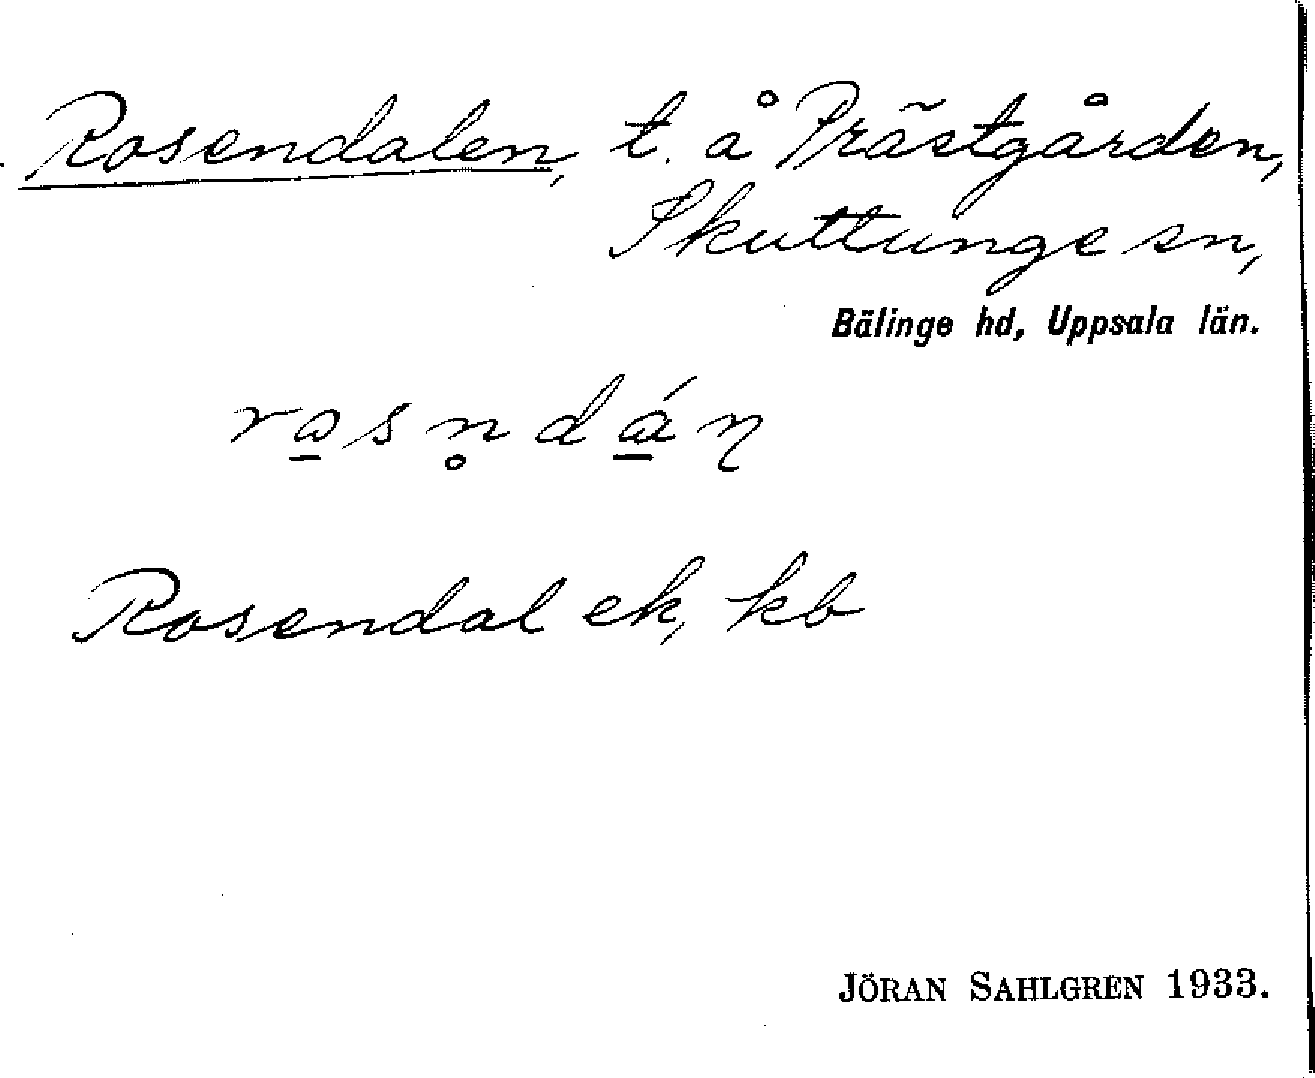 Rosendalen, t. å Prästgården,
Skuttunge sn,
Bälinge hd, Uppsala län.
Rosendal ek, kb
JÖRAN SAHLGREN 1933.